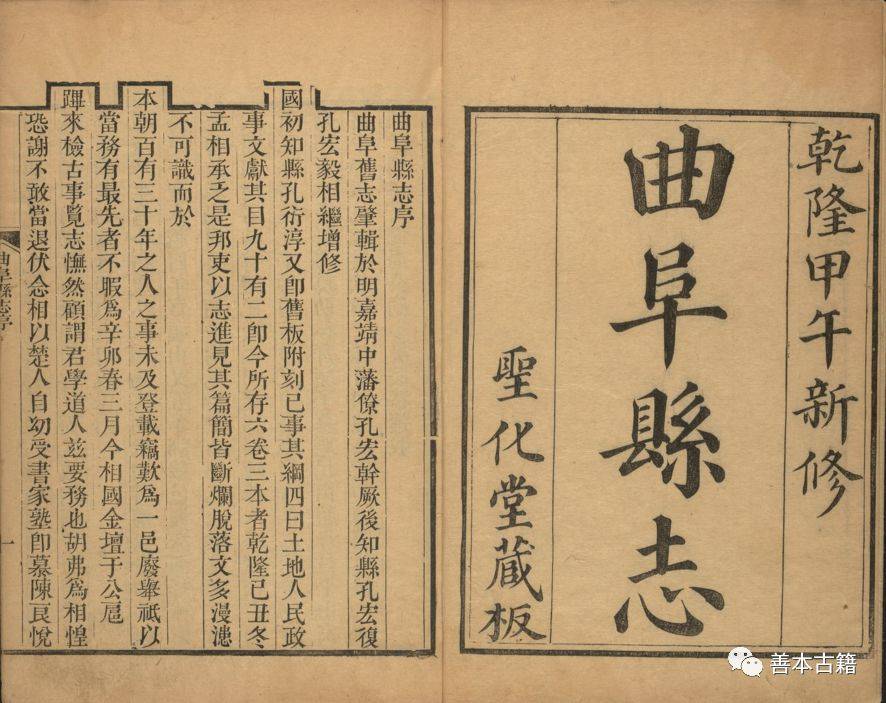 乾隆甲午新修
曲阜縣志
聖化堂藏板
曲阜縣志序
曲阜舊志肇輯於明嘉靖中藩僚孔宏幹厥後知縣孔宏復
孔宏毅相繼增修
國初知縣孔衍淳又卽舊板附刻已事其綱四曰土地人民政
事文獻其目九十有二卽今所存六卷三本者乾隆己丑冬
孟相承乏是邦吏以志進見其篇簡皆斷爛脫落文多漫漶
不可識而於
本朝百有三十年之人之事未及登載竊歎爲一邑廢舉祇以
當務有最先者不暇爲辛卯春三月今相國金壇于公扈
蹕來檢古事覽志憮然顧謂君學道人玆要務也胡弗爲相惶
恐謝不敢當退伏念相以楚人自幼受書家塾卽慕陳良悅
曲阜縣志序
一
善本古籍